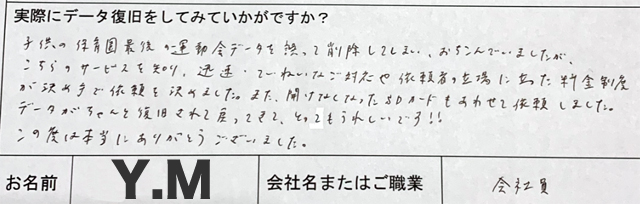 実際にデータ復旧をしてみていかがですか？
子供の保育園最後の運動会データを誤って削除してしまい、おちこんでいましたが、
こちらのサービスを知り、迅速・ていねいなご対応や依頼者の立場に立った料金制度
が決め手で依頼を決めました。また、開けなくなったSDカードもあわせて依頼しました。
データがちゃんと復旧されて戻ってきて、とってもうれしいです!!
この度は本当にありがとうございました。
お名前 Y.M 会社名またはご職業 会社員